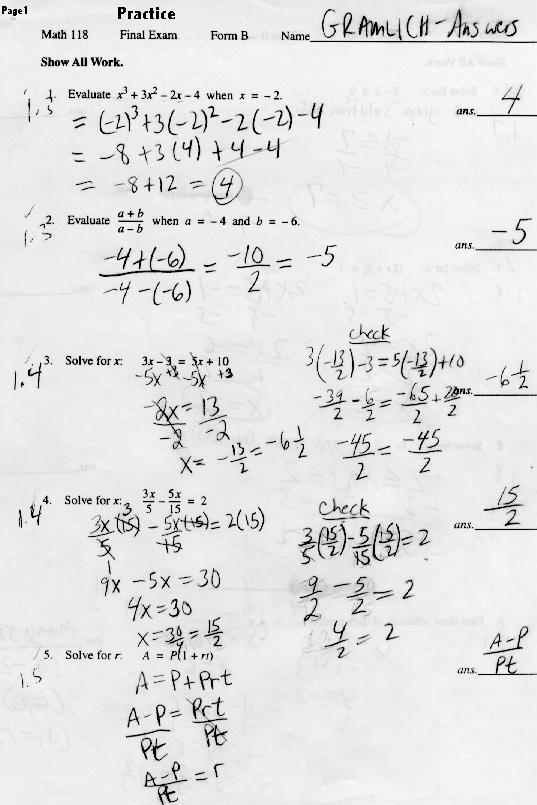 Page1
Practice
Math 118 Final Exam Form B Name GRAMLICH-Answers
Show All Work.
1. Evaluate x³ + 3x² – 2x – 4 when x = –2.
1.5
ans. 4
= (-2)³+3(-2)²-2(-2)-4
= -8+3(4)+4-4
= -8+12 = 4
2. Evaluate a+b/a–b when a = –4 and b = –6.
1.5
ans. -5
-4+(-6)/-4-(-6) = -10/2 = -5
3. Solve for x: 3x – 3 = 5x + 10
1.4
-5x +3 -5x +3
-2x/-2 = 13/-2
x = -13/2 = -6 1/2
check
3(-13/2)-3=5(-13/2)+10
-39/2 - 6/2 = -65/2 + 20/2
-45/2 = -45/2
ans. -6 1/2
4. Solve for x: 3x/5 – 5x/15 = 2
1.4
3
3x/5(15) - 5x/15(15) = 2(15)
1
9x -5x = 30
4x=30
x=30/4 = 15/2
check
3/5(15/2)-5/15(15/2)=2
9/2 - 5/2 = 2
4/2 = 2
ans. 15/2
5. Solve for r: A = P(1 + rt)
1.5
A = P+Prt
A-P/Pt = Prt/Pt
A-P/Pt = r
ans. A-P/Pt